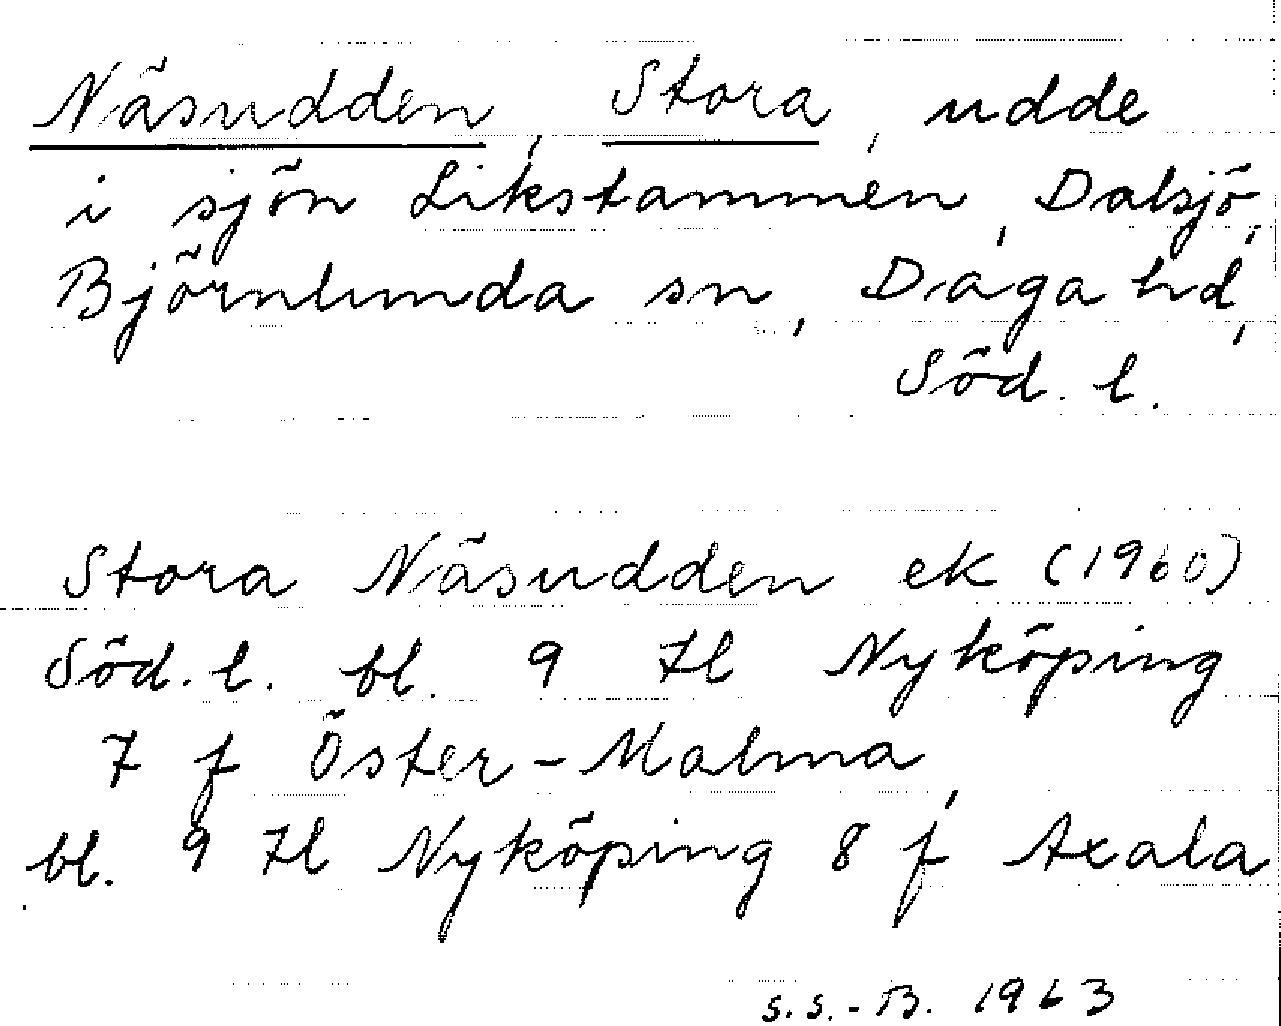 Näsudden, Stora, udde
i sjön Likstammen, Dalsjö,
Björnlunda sn, Daga hd,
Söd. l.
Stora Näsudden ek (1960)
Söd. l. bl. 9 H Nyköping
7 f Öster-Malma,
bl. 9 H Nyköping 8 f Axala
S.S.-B. 1963